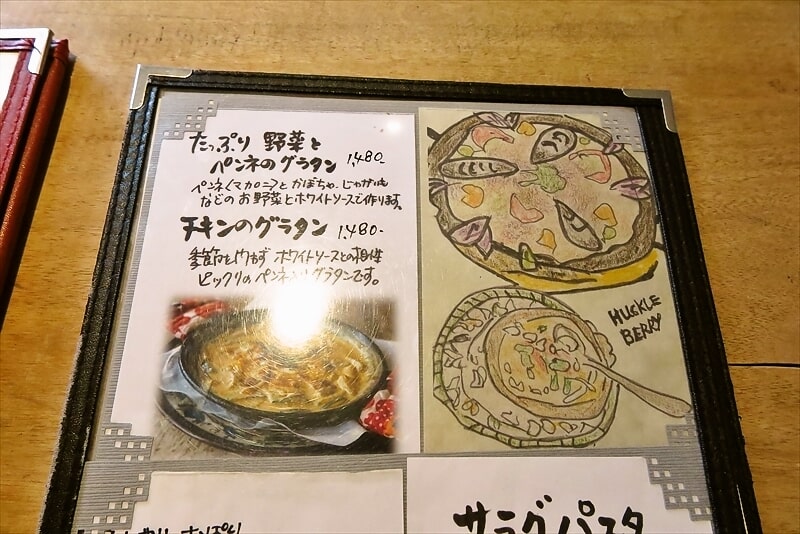 たっぷり 野菜と
ペンネのグラタン 1,480-
ペンネ(マカロニ)と かぼちゃ、じゃがいも
などの お野菜とホワイトソースで作ります。
チキンのグラタン 1,480-
季節を問わず ホワイトソースとの相性
ピックリのペンネ入りグラタンです。
HUCKLE
BERRY
サラダパスタ